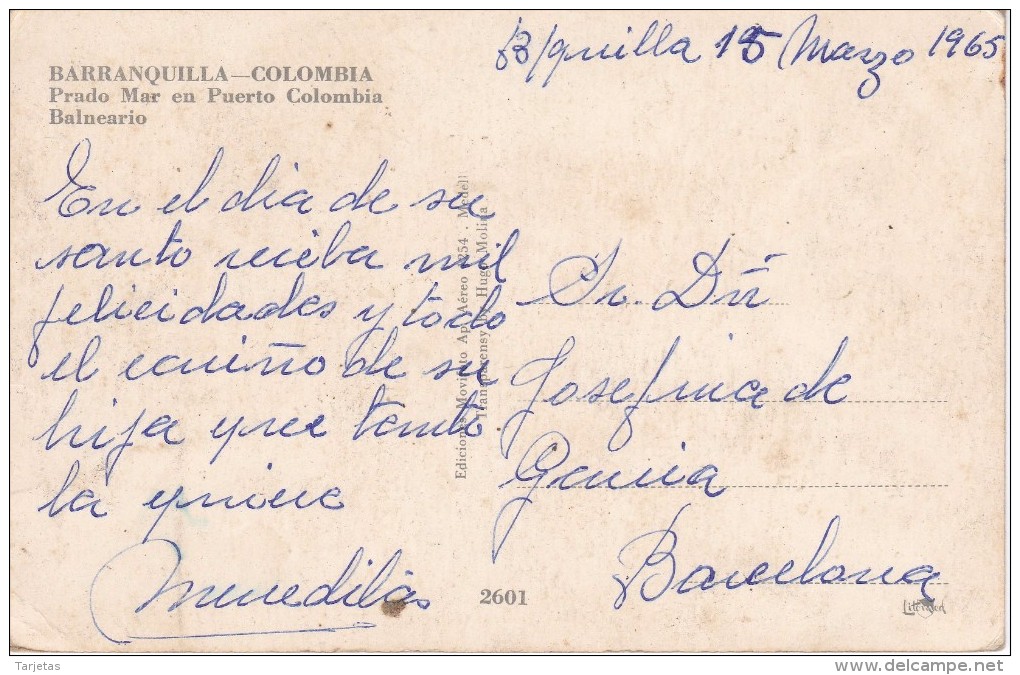 B/quilla 15 Marzo 1965
BARRANQUILLA—COLOMBIA
Prado Mar en Puerto Colombia
Balneario
En el dia de su
santo reciba mil
felicidades y todo
el cariño de su
hija que tanto
la quiere
Sr. Dñ
Josefina de
Garcia
Barcelona
Ediciones Movifoto Ap. Aéreo 254 . Medell
Transparensy by Hugo Molina
2601
Tarjetas
www.delcampe.net